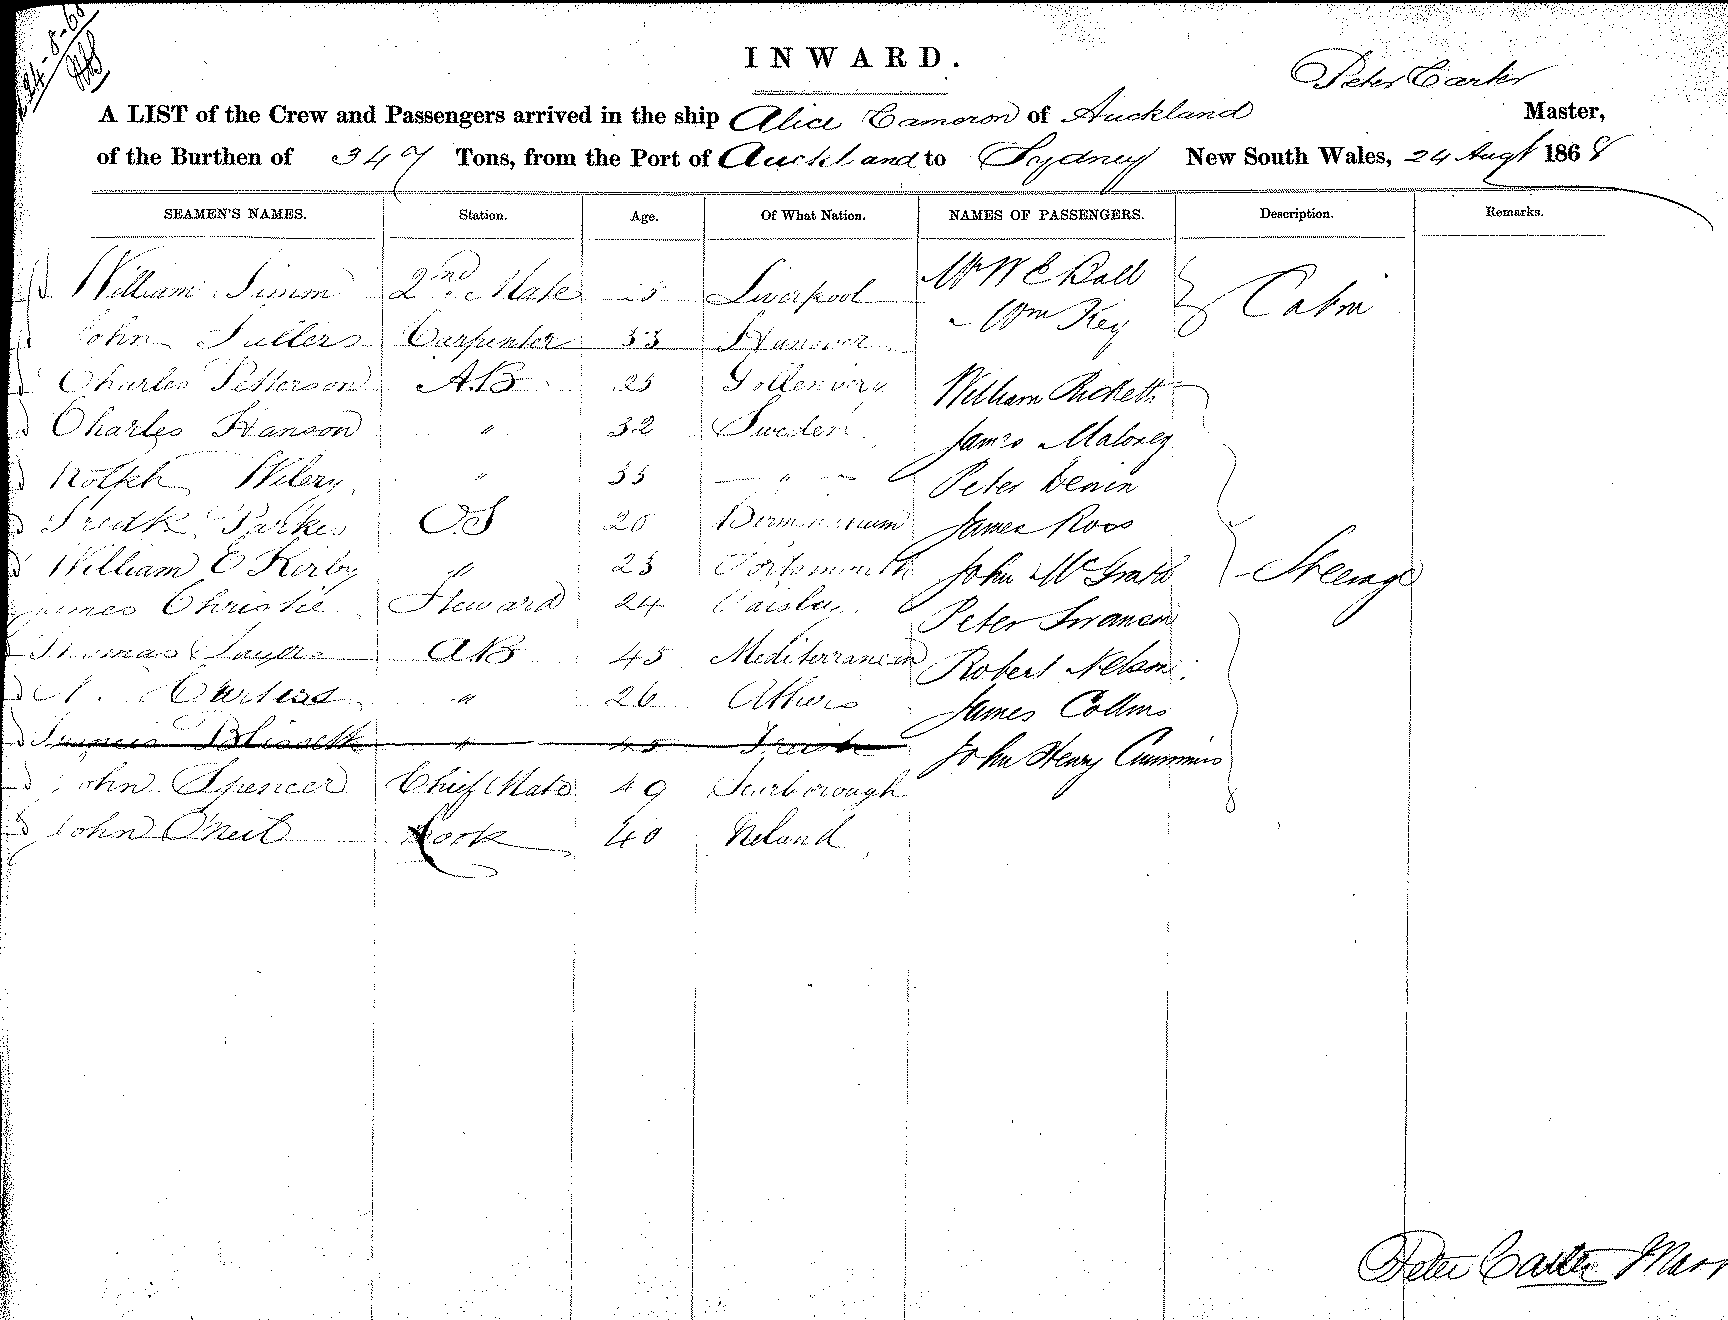 24-8-68
INWARD.
Peter Carter
A LIST of the Crew and Passengers arrived in the ship Alice Cameron of Auckland Master,
of the Burthen of 347 Tons, from the Port of Auckland to Sydney New South Wales, 24 Augt 1868
SEAMEN'S NAMES. Station. Age. Of What Nation. NAMES OF PASSENGERS. Description. Remarks.
William Simm 2nd Mate Liverpool Mr W E Ball Cabin
" Wm Key
John Carpenter 33 Hanover
Charles Petterson AB 25 William Ricketts
Charles Hanson " 32 Sweden James Maloney
Wilery " 35 " Peter Devin
Fredk Parkes OS 20 James Ross
William E Kirby " 25 Portsmouth John McGrath Steerage
James Christie Steward 24 Paisley Peter
Thomas Sayers AB 45 Mediterranean Robert Nelson
" 26 Athens James Collins
Francis Blissett " 45 John Henry Cummins
John Spencer Chief Mate 49 Scarborough
John O'Neil Cook 40 Ireland
Peter Carter